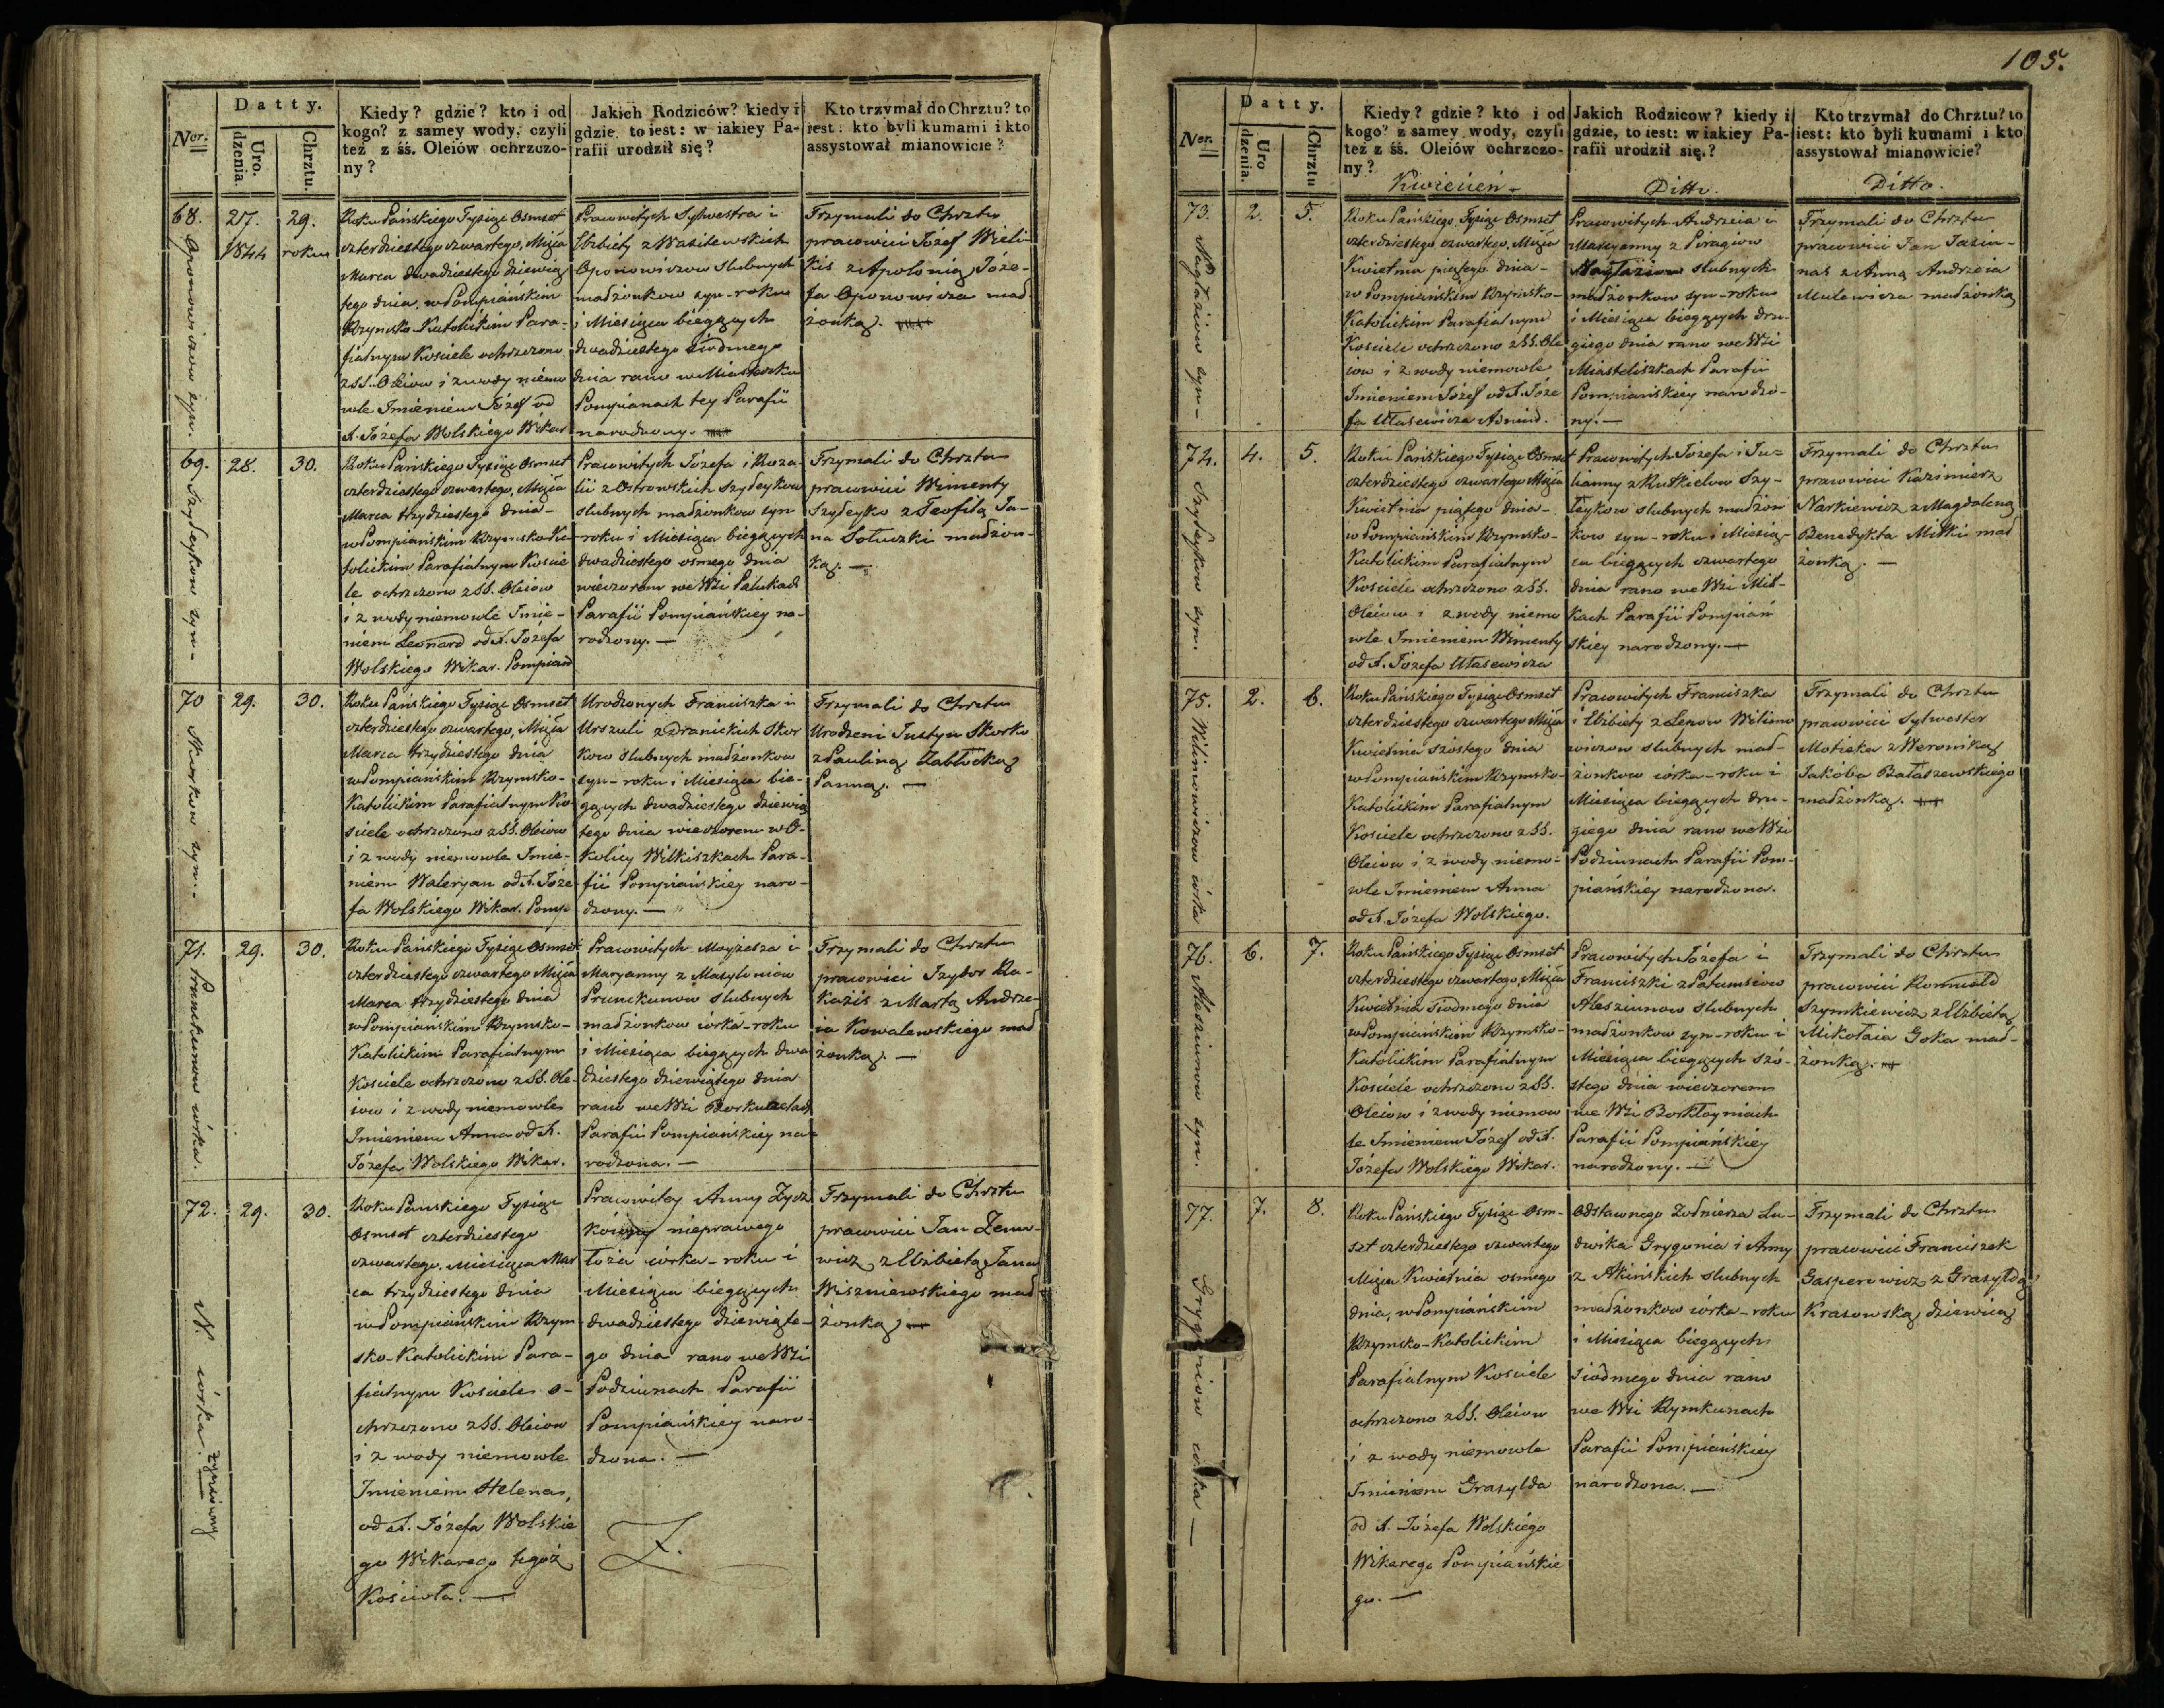 Datty.
Ner.
Uro.
dzenia.
Chrztu.
Kiedy? gdzie? kto i od
kogo? z samey wody, czyli
też z śś. Oleiów ochrzczo-
ny?
Jakich Rodziców? kiedy i
gdzie, to iest: w iakiey Pa-
rafii urodził się?
Kto trzymał do Chrztu? to
iest: kto byli kumami i kto
assystował mianowicie?
68.
Oponowiczow syn.
27.
1844
29.
roku
Roku Pańskiego Tysiąc Osmset
czterdziestego czwartego, Msca
Marca dwadziestego dziewią
tego dnia, w Pompiańskim
Rzymsko-Katolickim Para-
fialnym Kosciele ochrzczono
z SS. Oleiow i z wody niemo
wle Imieniem Józef od
X. Józefa Wolskiego Wikar
Pracowitych Sylwestra i
Elżbiety z Wasilewskich
Oponowiczow slubnych
małżonkow syn - roku
i Miesiąca biegących
dwadziestego siodmego
dnia rano w Miasteczku
Pompianach tey Parafii
narodzony.
Trzymali do Chrztu
pracowici Józef Wieli
kis z Apolonią Józe-
fa Oponowicza mał
żonką.
69.
Szyleykow syn -
28.
30.
Roku Pańskiego Tysiąc Osmset
czterdziestego czwartego, Msca
Marca trzydziestego dnia -
w Pompiańskim Rzymsko Ka
tolickim Parafialnym Koscie
le ochrzczono z SS. Oleiow
i z wody niemowle Imie-
niem Leonard od X. Józefa
Wolskiego Wikar. Pompian
Pracowitych Józefa i Roza-
lii z Ostrowskich Szyleykow
slubnych małżonkow syn
roku i Miesiąca biegących
dwadziestego osmego dnia
wieczorem we Wsi Pałukach
Parafii Pompiańskiey na-
rodzony. —
Trzymali do Chrztu
pracowici Wincenty
Szyleyko z Teofilą Ja-
na Sołuczki małżon-
ką. —
70
Skorkow syn. -
29.
30.
Roku Pańskiego Tysiąc Osmset
czterdziestego czwartego, Msca
Marca trzydziestego dnia
w Pompiańskim Rzymsko-
Katolickim Parafialnym Ko
sciele ochrzczono z SS. Oleiow
i z wody niemowle Imie-
niem Waleryan od X. Józe
fa Wolskiego Wikar. Pomp
Urodzonych Franciszka i
Urszuli z Dranickich Skor
kow slubnych małżonkow
syn - roku i Miesiąca bie-
gących dwadziestego dziewią
tego dnia wieczorem w O-
kolicy Wilkiszkach Para-
fii Pompiańskiey naro-
dzony. —
Trzymali do Chrztu
Urodzeni Justyn Skorko
z Pauliną Zabłocką
Panną. —
71.
Prunckunow córka.
29.
30.
Roku Pańskiego Tysiąc Osmset
czterdziestego czwartego Msca
Marca trzydziestego dnia
w Pompiańskim Rzymsko-
Katolickim Parafialnym
Kosciele ochrzczono z SS. Ole-
iow i z wody niemowle
Imieniem Anna od X.
Józefa Wolskiego Wikar.
Pracowitych Moyżesza i
Maryanny z Masyloniow
Prunckunow slubnych
małżonkow córka - roku
i Miesiąca biegących dwa
dziestego dziewiątego dnia
rano we Wsi
Parafii Pompiańskiey na-
rodzona. —
Trzymali do Chrztu
pracowici Izydor Ra-
każis z Martą Andrze-
ia Kowalewskiego mał
żonką. —
72.
N. córka.
29.
30.
Roku Pańskiego Tysiąc
Osmset czterdziestego
czwartego, Miesiąca Mar
ca trzydziestego dnia
w Pompiańskim Rzym
sko-Katolickim Para-
fialnym Kosciele o-
chrzczono z SS. Oleiow
i z wody niemowle
Imieniem Helena,
od X. Józefa Wolskie
go Wikarego tegoż
Kościoła. —
Pracowitey Anny
nieprawego
łoża córka - roku i
Miesiąca biegących
dwadziestego dziewiąte-
go dnia rano we Wsi
Podziunach Parafii
Pompiańskiey naro-
dzona. —
Z.
Trzymali do Chrztu
pracowici Jan Zeno-
wicz z Elżbietą Jana
Wiszniewskiego mał
żonką —
105.
Datty.
Ner.
Uro
dzenia.
Chrztu
Kiedy? gdzie? kto i od
kogo? z samey wody, czyli
też z śś. Oleiów ochrzczo-
ny?
Kwiecień -
Jakich Rodzicow? kiedy i
gdzie, to iest: w iakiey Pa-
rafii urodził się.?
Ditto.
Kto trzymał do Chrztu? to
iest: kto byli kumami i kto
assystował mianowicie?
Ditto.
73.
Nagłaziow syn -
2.
5.
Roku Pańskiego Tysiąc Osmset
czterdziestego czwartego, Msca
Kwietnia piątego dnia -
w Pompiańskim Rzymsko-
Katolickim Parafialnym
Kosciele ochrzczono z SS. Ole
iow i z wody niemowle
Imieniem Józef od X. Józe
fa Ułasewicza Admind.
Pracowitych Andrzeia i
Maryanny z Piragiow
Nagłaziow slubnych
małżonkow syn - roku
i Miesiąca biegących dru-
giego dnia rano we Wsi
Miasteliszkach Parafii
Pompiańskiey narodzo-
ny. —
Trzymali do Chrztu
pracowici Jan Jasiu-
nas z Anną Andrzeia
Mulewicza małżonką
74.
Szyleykow syn.
4.
5.
Roku Pańskiego Tysiąc Osmset
czterdziestego czwartego Msca
Kwietnia piątego dnia -
w Pompiańskim Rzymsko-
Katolickim Parafialnym
Kosciele ochrzczono z SS.
Oleiow i z wody niemo
wle Imieniem Wincenty
od X. Józefa Ułasewicza
Pracowitych Józefa i Ju-
lianny z Rutkielow Szy-
leykow slubnych małżon
kow syn - roku i Miesią-
ca biegących czwartego
dnia rano we Wsi Mił-
kach Parafii Pompiań
skiey narodzony. —
Trzymali do Chrztu
pracowici Kazimierz
Narkiewicz z Magdaleną
Benedykta Miłki mał
żonką. —
75.
Wilimowiczow córka
2.
6.
Roku Pańskiego Tysiąc Osmset
czterdziestego czwartego Msca
Kwietnia szóstego dnia
w Pompiańskim Rzymsko-
Katolickim Parafialnym
Kosciele ochrzczono z SS.
Oleiow i z wody niemo-
wle Imieniem Anna
od X. Józefa Wolskiego.
Pracowitych Franciszka
i Elżbiety z Lenow Wilimo
wiczow slubnych mał-
żonkow córka - roku i
Miesiąca biegących dru-
giego dnia rano we Wsi
Podziunach Parafii Pom-
piańskiey narodzona.
Trzymali do Chrztu
pracowici Sylwester
Motieka z Weroniką
Jakóba Bałaszewskiego
małżonką.
76.
Aleziunow syn.
6.
7.
Roku Pańskiego Tysiąc Osmset
czterdziestego czwartego, Msca
Kwietnia siodmego dnia
w Pompiańskim Rzymsko-
Katolickim Parafialnym
Kościele ochrzczono z SS.
Oleiow i z wody niemow
le Imieniem Józef od X.
Józefa Wolskiego Wikar.
Pracowitych Józefa i
Franciszki z Patumsiow
Aleziunow slubnych
małżonkow syn - roku i
Miesiąca biegących szó-
stego dnia wieczorem
we Wsi Borkłoyniach
Parafii Pompiańskiey
narodzony. —
Trzymali do Chrztu
pracowici Romuald
Szymkiewicz z Elżbietą
Mikołaia Goka mał-
żonką.
77.
Grygoniow córka —
7.
8.
Roku Pańskiego Tysiąc Osm-
szt czterdziestego czwartego
Msca Kwietnia osmego
dnia, w Pompiańskim
Rzymsko-Katolickim
Parafialnym Kosciele
ochrzczono z SS. Oleiow
i z wody niemowle
Imieniem Grasylda
od X. Józefa Wolskiego
Wikarego Pompiańskie
go. —
Odstawnego Żołnierza Lu-
dwika Grygonia i Anny
z Akińskich slubnych
małżonkow córka - roku
i Miesiąca biegących
siodmego dnia rano
we Wsi Rymkunach
Parafii Pompiańskiey
narodzona. —
Trzymali do Chrztu
pracowici Franciszek
Gasperowicz z Grasyldą
Krasowską dziewicą